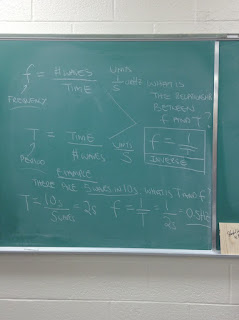 f = # WAVES / TIME
UNITS
1/s
WHAT IS
THE RELATIONSHIP
BETWEEN
f AND T?
FREQUENCY
T = TIME / # WAVES
UNITS
S
f = 1/T
INVERSE
PERIOD
EXAMPLE
THERE ARE 5 WAVES IN 10s. WHAT IS T AND f
T = 10s / 5 WAVES = 2s f = 1/T = 1/2s = 0.5Hz